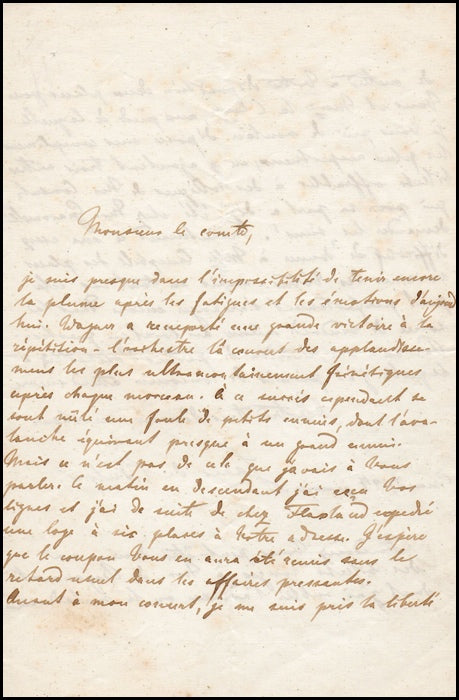 Monsieur le comte,
je suis presque dans l'impossibilité de tenir encore
la plume après les fatigues et les émotions d'aujourd
hui. Wagner a remporté une grande victoire à la
répétition - l'orchestre l'a couvert des applaudisse-
mens les plus ultramontainement frénétiques
après chaque morceau. À ce succès cependant se
sont mêlé une foule de petits ennuis, dont l'ava-
lanche équivaut presque à un grand ennui.
Mais ce n'est pas de cela que j'avais à Vous
parler. le matin en descendant j'ai reçu Vos
lignes et j'ai de suite de chez Flaxland expédié
une loge à six places à Votre adresse. J'espère
que le coupon Vous en aura été remis sans le
retard usuel dans les affaires pressantes.
Quant à mon concert, je me suis pris la liberté